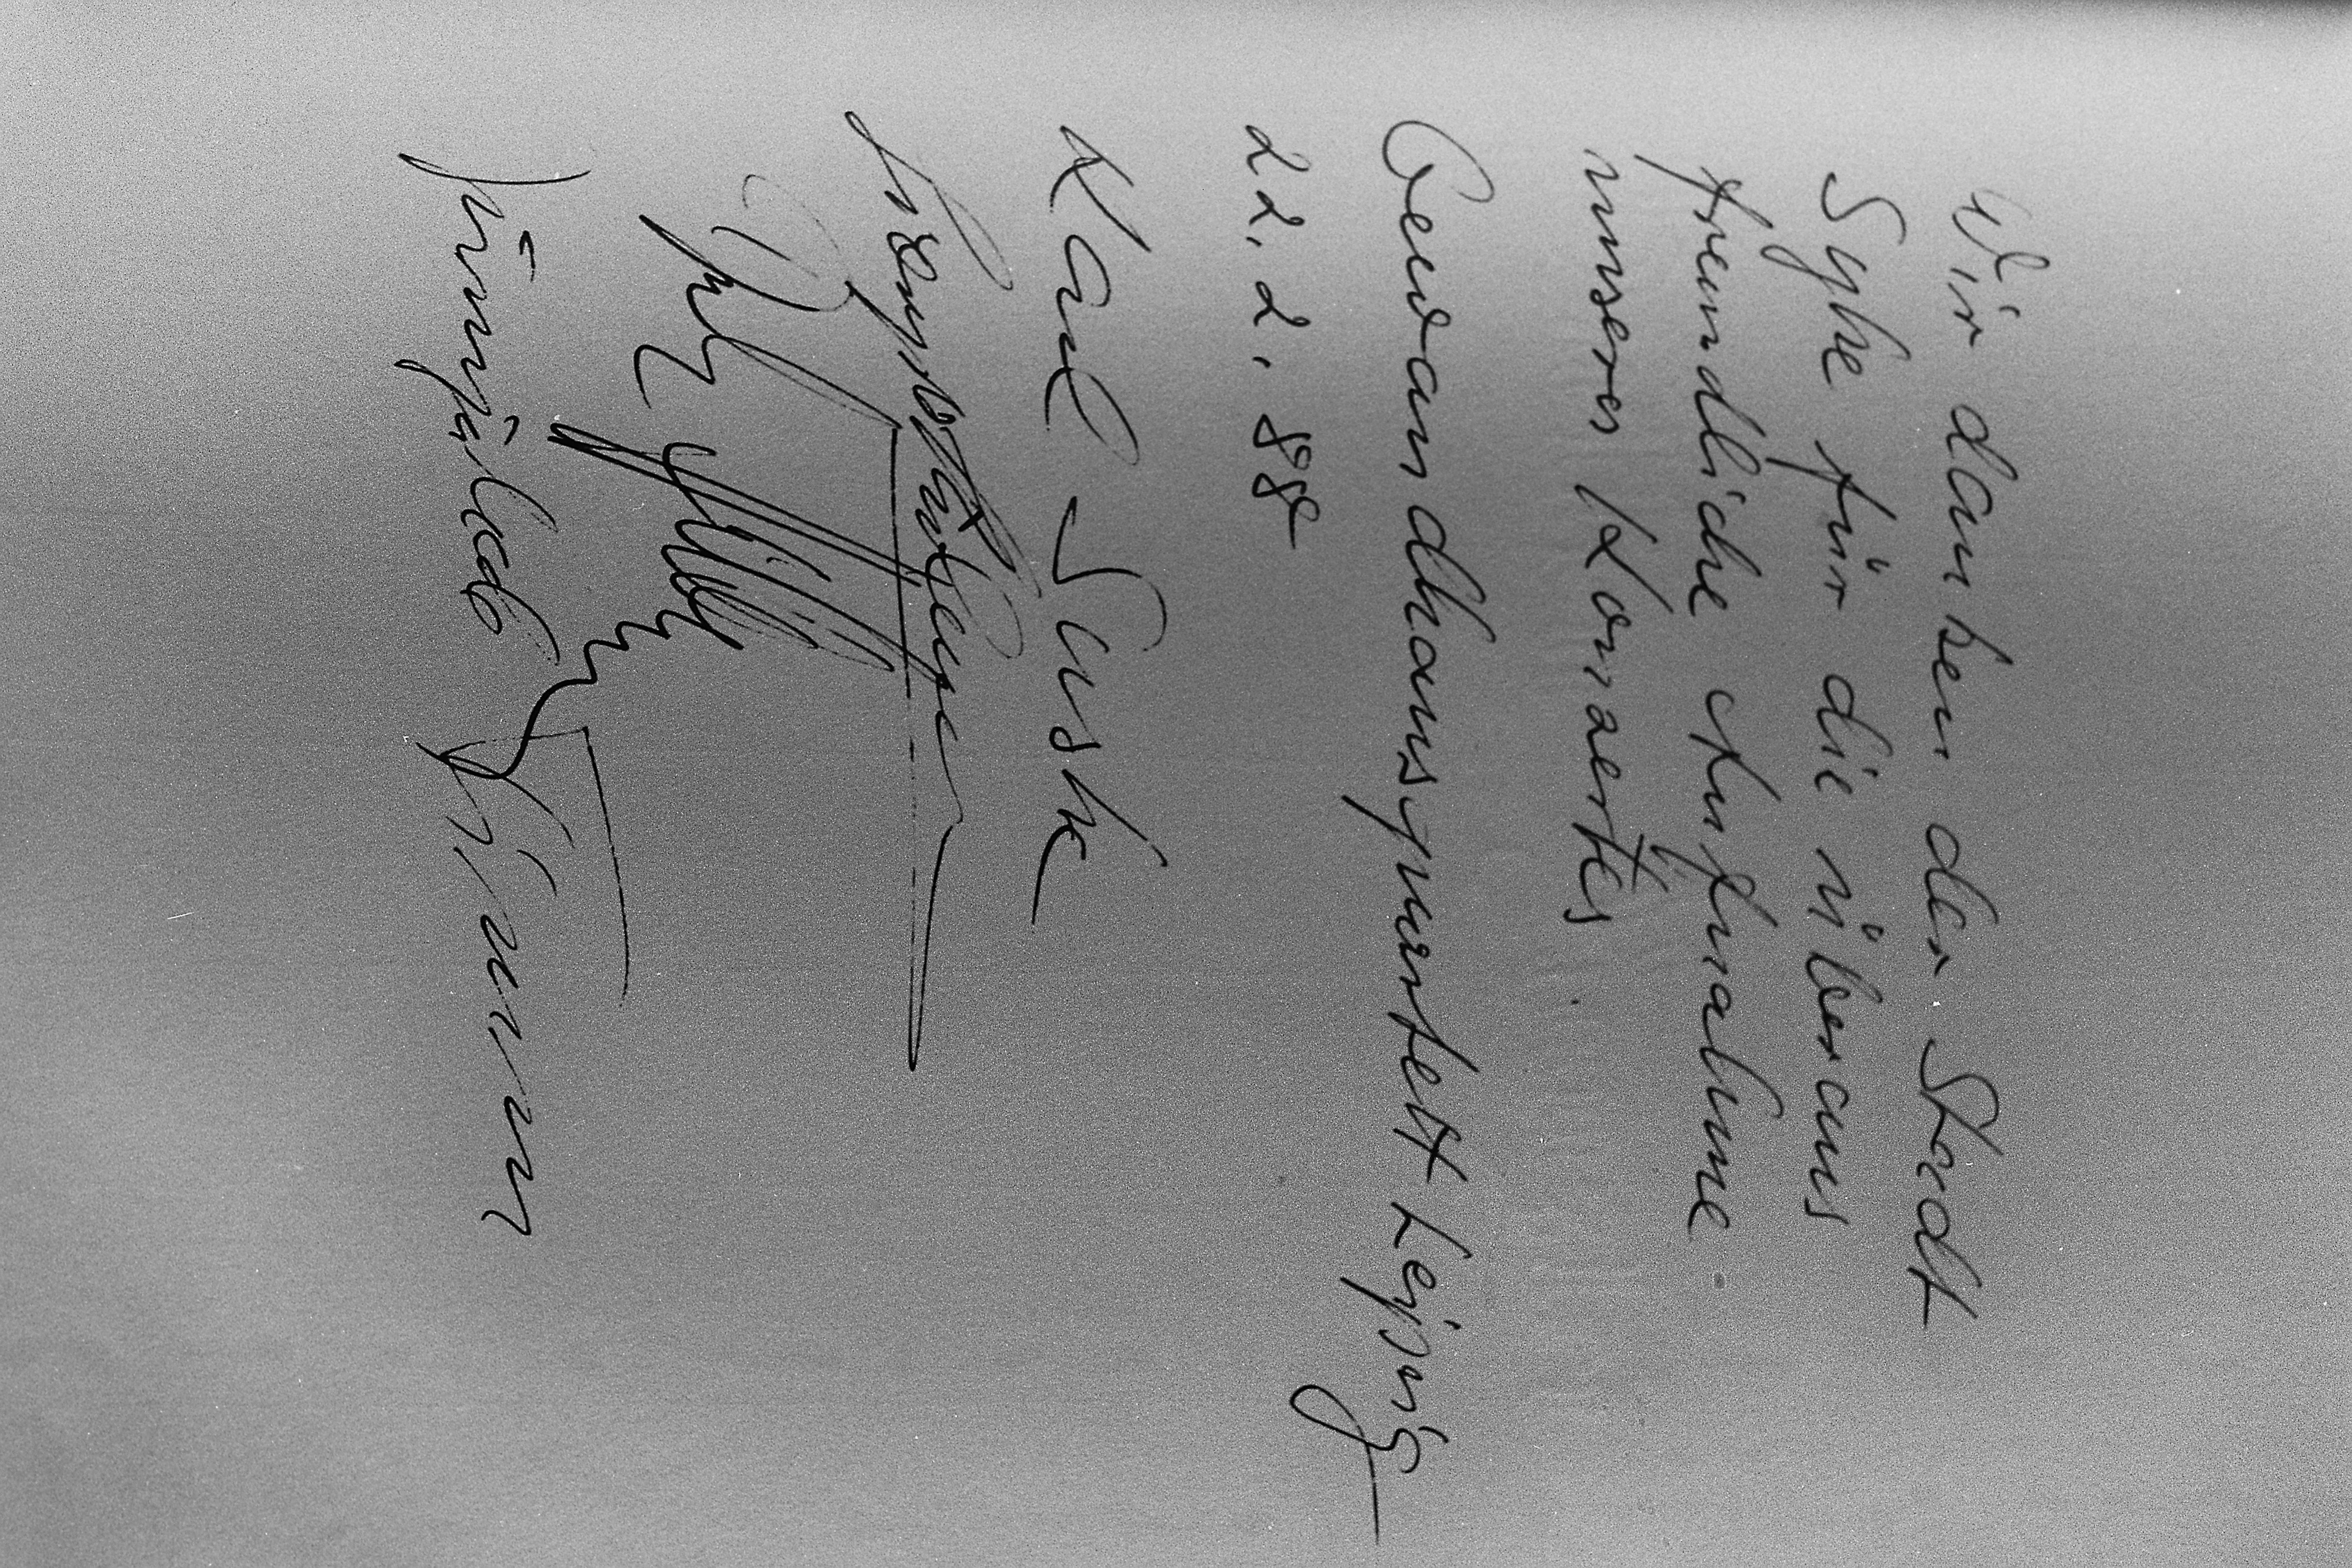 Wir danken der Stadt
Syke für die überaus
freundliche Aufnahme
unseres Konzertes.
Gewandhausquartett Leipzig
22. 2. 88
Karl Suske
Jürnjakob Timm